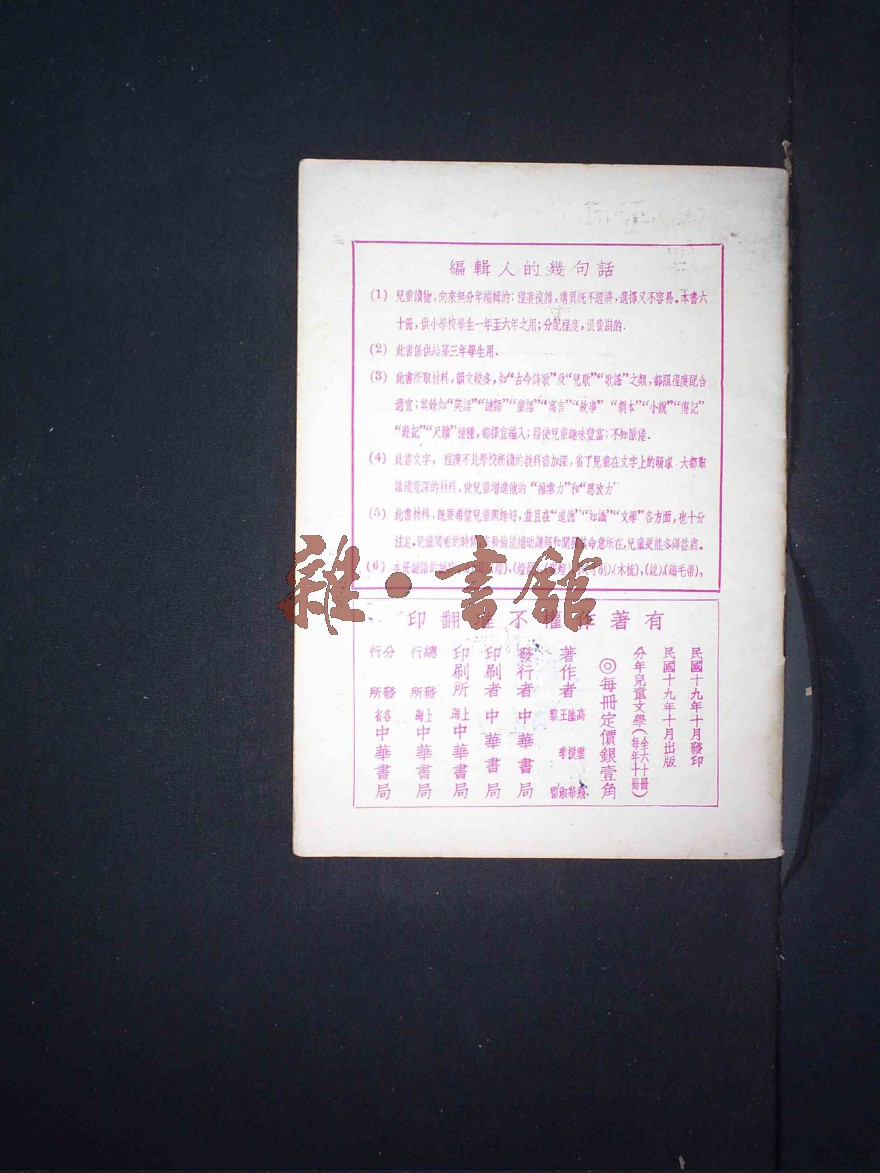 編輯人的幾句話
(1) 兒童讀物,向來無分年編輯的;程度複雜,購買既不經濟,選擇又不容易.本書六
十冊,供小學校學生一年至六年之用;分配程度,很費斟酌.
(2) 此書係供給第三年學生用.
(3) 此書所取材料,韻文較多,如“古今詩歌”及“兒歌”“歌謠”之類,都照程度配合
適宜;其餘如“笑話”“謎語”“童話”“寓言”“故事”“劇本”“小說”“傳記”
“遊記”“尺牘”種種,都擇宜編入;務使兒童趣味豐富;不知厭倦.
(4) 此書文字,程度不比學校所讀的教科書加深,省了兒童在文字上的研求 大都取
語淺意深的材料,使兒童增進他的“推索力”和“思攷力”
(5) 此書材料,既要希望兒童興趣好,並且在“道德”“知識”“文學”各方面,也十分
注意.兒童閱看的時候,能補助講解和闡發其命意所在,兒童更能多得益處.
(6) 本冊謎語的,(木梳),(鐃),(雞毛帚),
雜·書館
有著作權不准翻印
民國十九年十月發印
民國十九年十月出版
分年兒童文學(全六十冊 每年十冊)
◎每冊定價銀壹角
著作者
發行者 中華書局
印刷者 中華書局
印刷所 上海中華書局
總發行所 上海中華書局
分發行所 各省中華書局